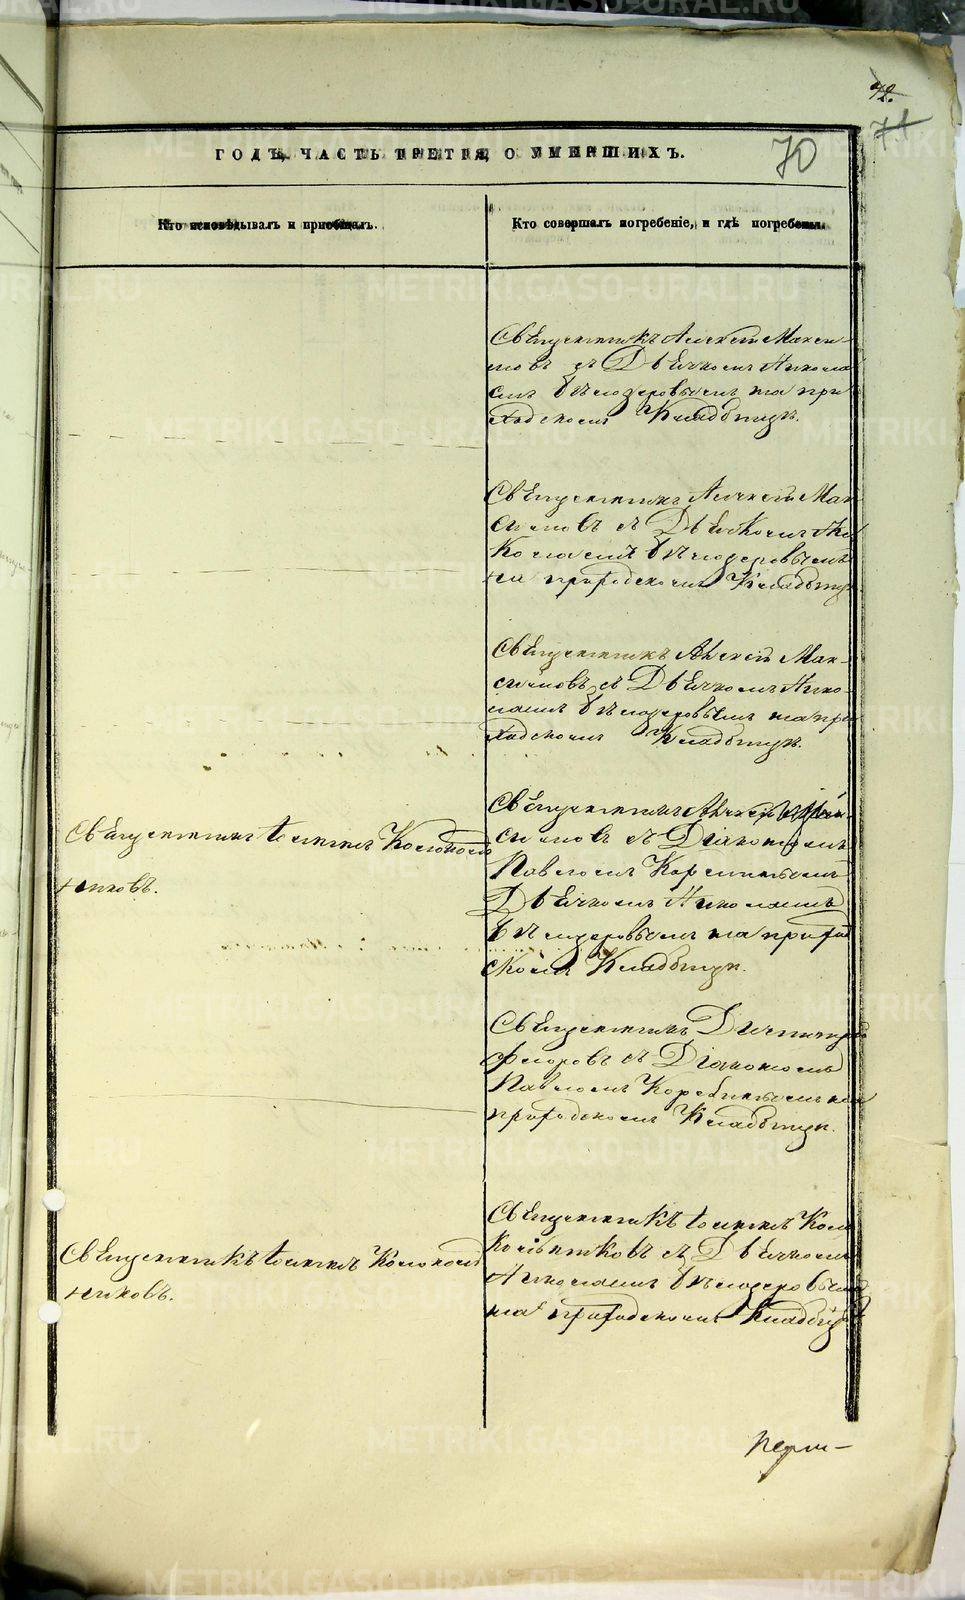 42.
71
70
ГОДЪ, ЧАСТЬ ТРЕТІЯ, О УМЕРШИХЪ.
Кто исповѣдывалъ и пріобщалъ.
Кто совершалъ погребеніе, и гдѣ погребены.
Священникъ Алексѣй Макси-
мовъ съ Дьячкомъ Никола
емъ Бѣлозеровымъ на при
ходскомъ Кладбищѣ.
Священникъ Алексѣй Мак
симовъ съ Дьячкомъ Ни
колаемъ Бѣлозеровымъ
на приходскомъ Кладбищѣ
Священникъ Алексѣй Мак-
симовъ съ Дьячкомъ Нико-
лаемъ Бѣлозеровымъ на при
ходскомъ Кладбищѣ.
Священникъ Іоаннъ Колоколь
никовъ.
Священникъ Алексѣй Мак-
симовъ съ Діакономъ
Павломъ
Дьячкомъ Николаемъ
Бѣлозеровымъ на приход
скомъ Кладбищѣ.
Священникъ Димитрій
Флоровъ съ Діакономъ
Павломъ на
приходскомъ Кладбищѣ.
Священникъ Іоаннъ Коло
кольниковъ съ Дьячкомъ
Николаемъ Бѣлозеровымъ
на приходскомъ Кладбищѣ
Священникъ Іоаннъ Колоколь
никовъ.
METRIKI.GASO-URAL.RU